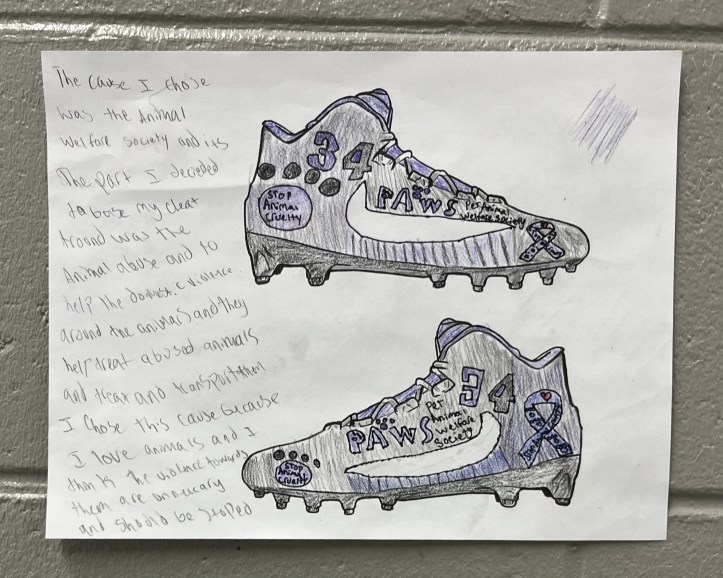 The cause I chose
was the Animal
welfare society and its
The part I decieded
to base my cleat
around was the
Animal abuse and to
help the domestic violence
around the animals and they
help treat abused animals
and treat and transport them
I chose this cause because
I love animals and I
think the violence towards
them are unnucary
and should be stoped
34
STOP
Animal
Cruelty
PAWS
Pet Animal
Welfare Society
34
PAWS
Pet
Animal
Welfare
Society
STOP
Animal
Cruelty